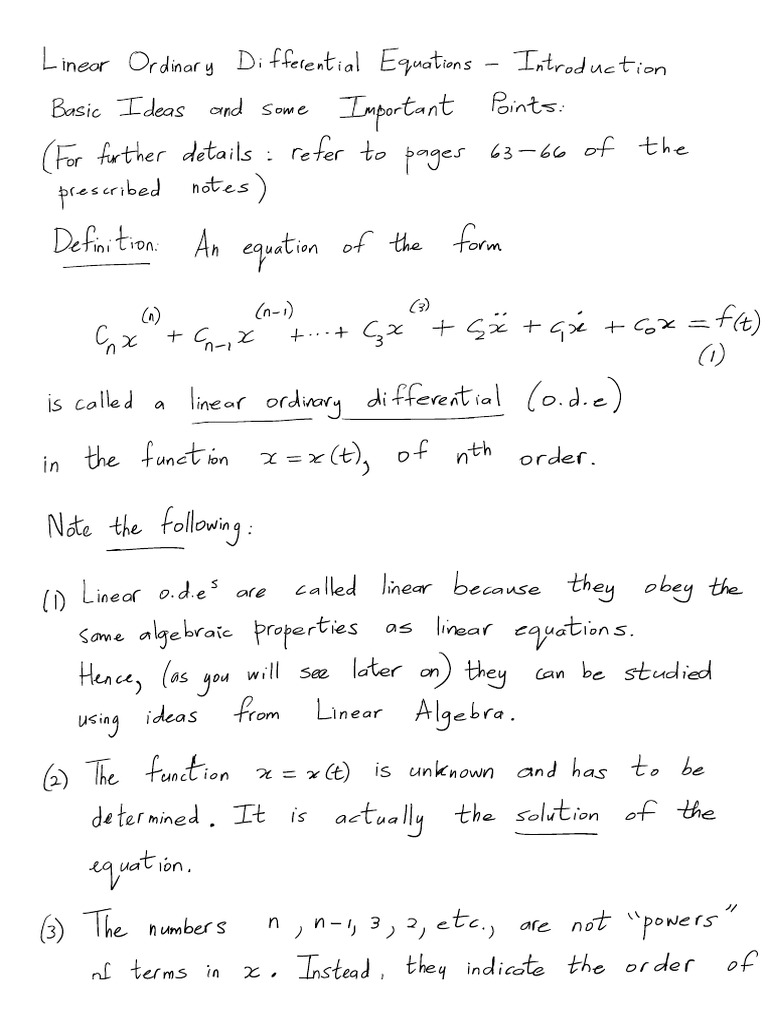 Linear Ordinary Differential Equations – Introduction
Basic Ideas and some Important Points:
(For further details : refer to pages 63–66 of the
prescribed notes)
Definition: An equation of the form
Cₙx⁽ⁿ⁾ + Cₙ₋₁x⁽ⁿ⁻¹⁾ + ... + C₃x⁽³⁾ + C₂ẍ + C₁ẋ + C₀x = f(t)
(1)
is called a linear ordinary differential (o.d.e)
in the function x = x(t), of nᵗʰ order.
Note the following:
(1) Linear o.d.eˢ are called linear because they obey the
same algebraic properties as linear equations.
Hence, (as you will see later on) they can be studied
using ideas from Linear Algebra.
(2) The function x = x(t) is unknown and has to be
determined. It is actually the solution of the
equation.
(3) The numbers n, n-1, 3, 2, etc., are not "powers"
of terms in x. Instead, they indicate the order of